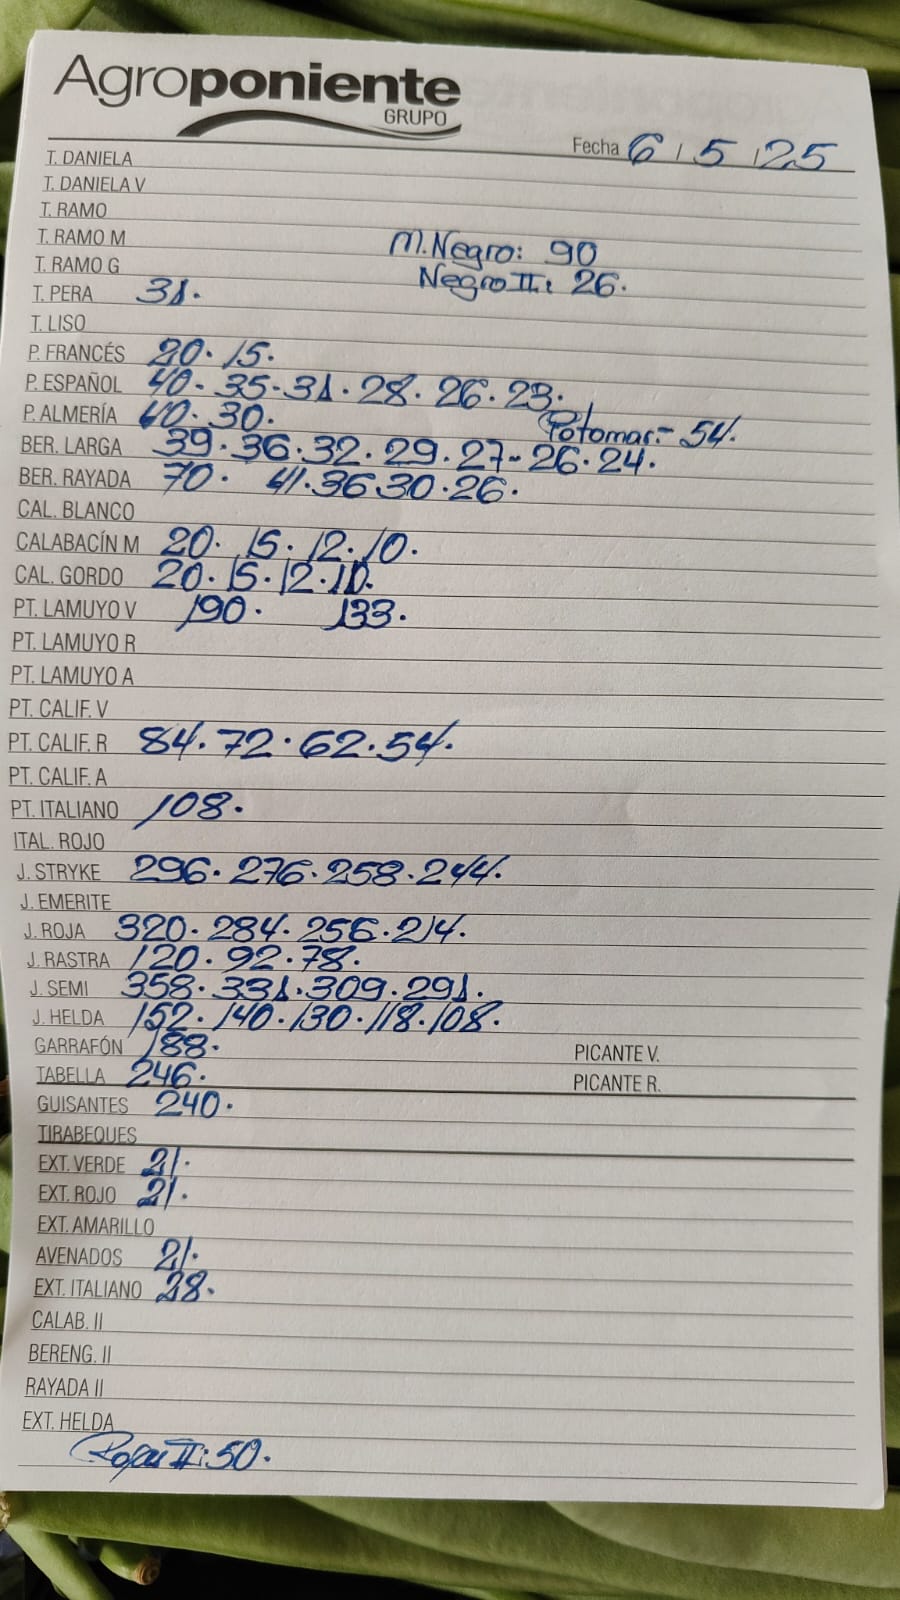 Agroponiente
GRUPO
Fecha 6 / 5 / 25
T. DANIELA
T. DANIELA V
T. RAMO
T. RAMO M M. Negro: 90
T. RAMO G Negro II: 26.
T. PERA 31.
T. LISO
P. FRANCÉS 20. 15.
P. ESPAÑOL 40. 35. 31. 28. 26. 23.
P. ALMERÍA 40. 30. Potomar:- 54.
BER. LARGA 39. 36. 32. 29. 27. 26. 24.
BER. RAYADA 70. 41. 36 30. 26.
CAL. BLANCO
CALABACÍN M 20. 15. 12. 10.
CAL. GORDO 20. 15. 12. 10.
PT. LAMUYO V 190. 133.
PT. LAMUYO R
PT. LAMUYO A
PT. CALIF. V
PT. CALIF. R 84. 72. 62. 54.
PT. CALIF. A
PT. ITALIANO 108.
ITAL. ROJO
J. STRYKE 296. 276. 258. 244.
J. EMERITE
J. ROJA 320. 284. 256. 214.
J. RASTRA 120. 92. 78.
J. SEMI 358. 331. 309. 291.
J. HELDA 152. 140. 130. 118. 108.
GARRAFÓN 188. PICANTE V.
TABELLA 246. PICANTE R.
GUISANTES 240.
TIRABEQUES
EXT. VERDE 21.
EXT. ROJO 21.
EXT. AMARILLO
AVENADOS 21.
EXT. ITALIANO 28.
CALAB. II
BERENG. II
RAYADA II
EXT. HELDA
II: 50.